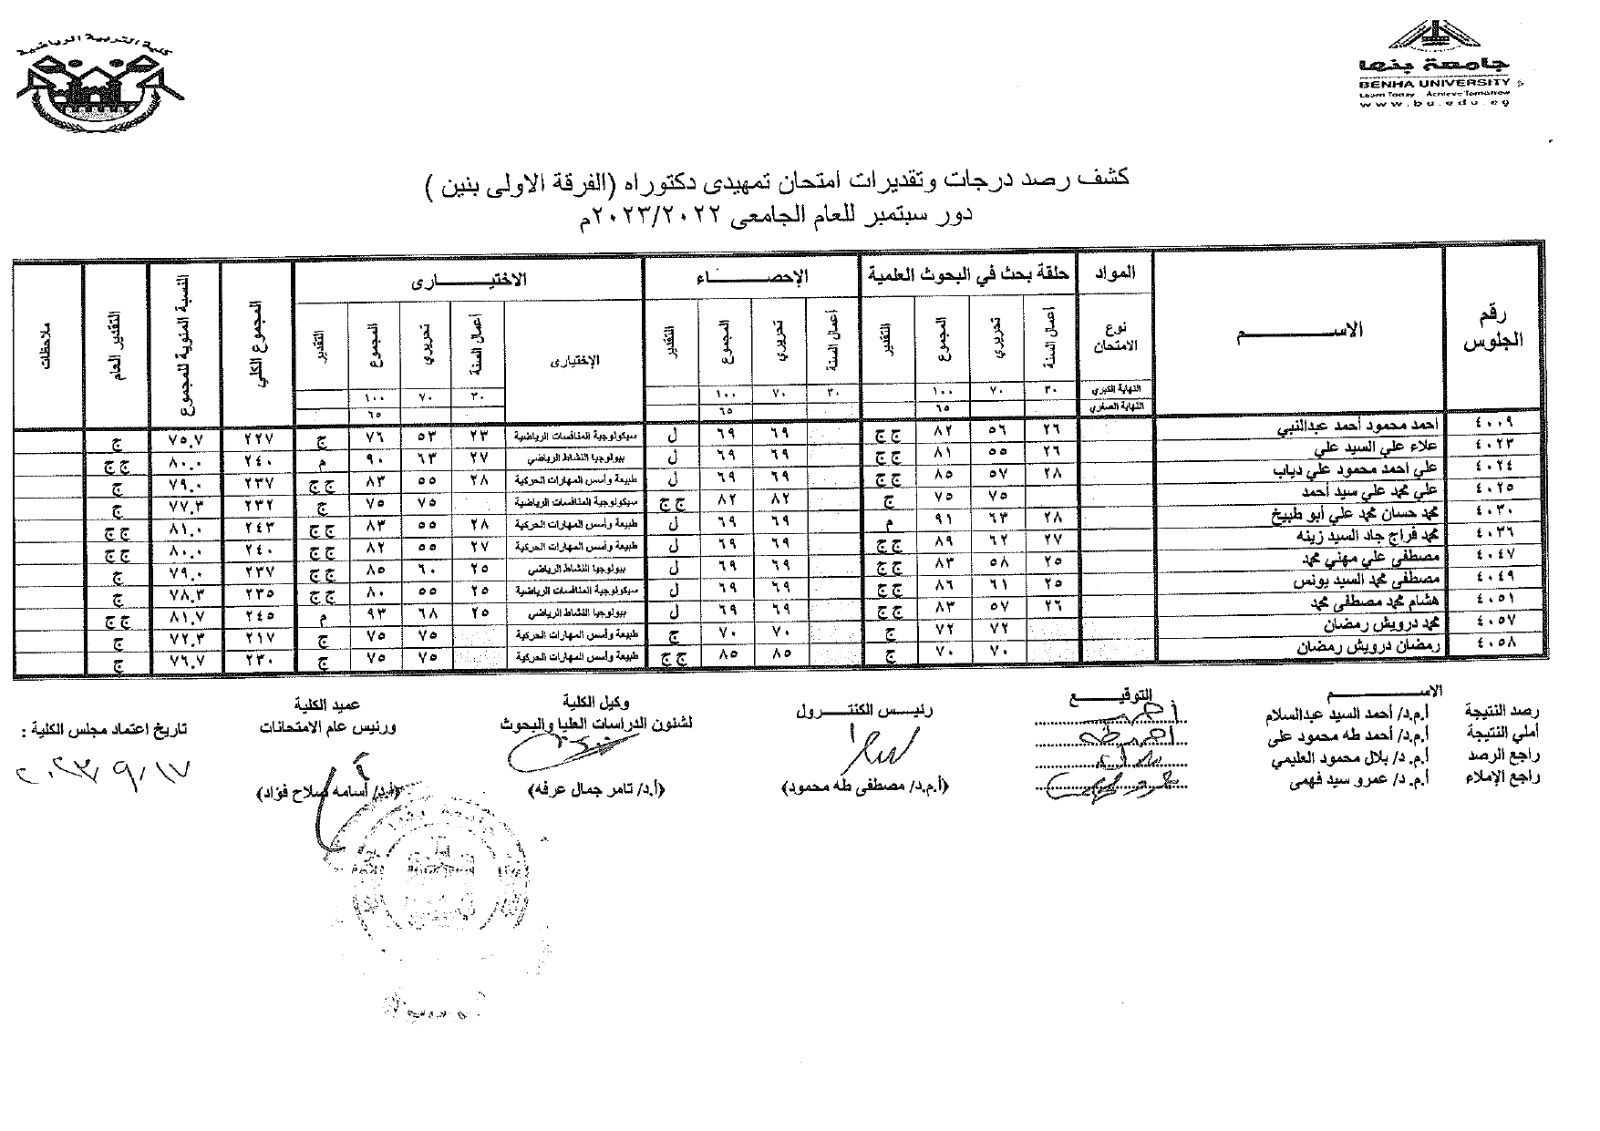 كلية التربية الرياضية
جامعة بنها
BENHA UNIVERSITY
Learn Today .. Achieve Tomorrow
www.bu.edu.eg
كشف رصد درجات وتقديرات امتحان تمهيدى دكتوراه (الفرقة الاولى بنين )
دور سبتمبر للعام الجامعى ٢٠٢٣/٢٠٢٢م
رقم الجلوس الاســـــــــم المواد حلقة بحث في البحوث العلمية الإحصـــــــاء الاختيـــــــارى المجموع الكلي النسبة المئوية للمجموع التقدير العام ملاحظات
نوع الامتحان أعمال السنة تحريري المجموع التقدير أعمال السنة تحريري المجموع التقدير الإختيارى أعمال السنة تحريري المجموع التقدير
النهاية الكبري ٣٠ ٧٠ ١٠٠ ٣٠ ٧٠ ١٠٠ ٣٠ ٧٠ ١٠٠
النهاية الصغري ٦٥ ٦٥ ٦٥
٤٠٠٩ احمد محمود أحمد عبدالنبي ٢٦ ٥٦ ٨٢ ج ج ٦٩ ٦٩ ل سيكولوجية المنافسات الرياضية ٢٣ ٥٣ ٧٦ ج ٢٢٧ ٧٥.٧ ج
٤٠٢٣ علاء علي السيد علي ٢٦ ٥٥ ٨١ ج ج ٦٩ ٦٩ ل بيولوجيا النشاط الرياضي ٢٧ ٦٣ ٩٠ م ٢٤٠ ٨٠.٠ ج ج
٤٠٢٤ علي احمد محمود علي دياب ٢٨ ٥٧ ٨٥ ج ج ٦٩ ٦٩ ل طبيعة وأسس المهارات الحركية ٢٨ ٥٥ ٨٣ ج ج ٢٣٧ ٧٩.٠ ج
٤٠٢٥ علي محمد علي سيد أحمد ٧٥ ٧٥ ج ٨٢ ٨٢ ج ج سيكولوجية المنافسات الرياضية ٧٥ ٧٥ ج ٢٣٢ ٧٧.٣ ج
٤٠٣٠ محمد حسان محمد علي أبو طبيخ ٢٨ ٦٣ ٩١ م ٦٩ ٦٩ ل طبيعة وأسس المهارات الحركية ٢٨ ٥٥ ٨٣ ج ج ٢٤٣ ٨١.٠ ج ج
٤٠٣٦ محمد فراج جاد السيد زينه ٢٧ ٦٢ ٨٩ ج ج ٦٩ ٦٩ ل طبيعة وأسس المهارات الحركية ٢٧ ٥٥ ٨٢ ج ج ٢٤٠ ٨٠.٠ ج ج
٤٠٤٧ مصطفى علي مهني محمد ٢٥ ٥٨ ٨٣ ج ج ٦٩ ٦٩ ل بيولوجيا النشاط الرياضي ٢٥ ٦٠ ٨٥ ج ج ٢٣٧ ٧٩.٠ ج
٤٠٤٩ مصطفى محمد السيد يونس ٢٥ ٦١ ٨٦ ج ج ٦٩ ٦٩ ل سيكولوجية المنافسات الرياضية ٢٥ ٥٥ ٨٠ ج ج ٢٣٥ ٧٨.٣ ج
٤٠٥١ هشام محمد مصطفى محمد ٢٦ ٥٧ ٨٣ ج ج ٦٩ ٦٩ ل بيولوجيا النشاط الرياضي ٢٥ ٦٨ ٩٣ م ٢٤٥ ٨١.٧ ج ج
٤٠٥٧ محمد درويش رمضان ٧٢ ٧٢ ج ٧٠ ٧٠ ج طبيعة وأسس المهارات الحركية ٧٥ ٧٥ ج ٢١٧ ٧٢.٣ ج
٤٠٥٨ رمضان درويش رمضان ٧٠ ٧٠ ج ٨٥ ٨٥ ج ج طبيعة وأسس المهارات الحركية ٧٥ ٧٥ ج ٢٣٠ ٧٦.٧ ج
الاســـــــم التوقيـــــع
رصد النتيجة أ.م.د/ أحمد السيد عبدالسلام
أملي النتيجة أ.م.د/ أحمد طه محمود على
راجع الرصد أ.م.د/ بلال محمود العليمي
راجع الإملاء أ.م.د/ عمرو سيد فهمى
رئيـــس الكنتـــرول
(أ.م.د/ مصطفى طه محمود)
وكيل الكلية
لشئون الدراسات العليا والبحوث
(أ.د/ تامر جمال عرفه)
عميد الكلية
ورئيس عام الامتحانات
(أ.د/ أسامه صلاح فؤاد)
تاريخ اعتماد مجلس الكلية :
٢٠٢٣/٩/١٧